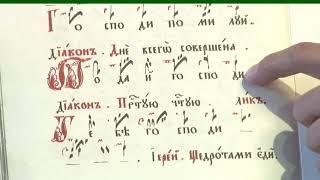 Го спо ди по ми луй.
Дїа́конъ. Днѐ всегѡ̀ соверше́на.
По да й го спо ди
Дїа́конъ. Прⷭ҇тꙋю чⷭ҇тꙋю. Ли́къ.
Те бѣ го спо ди
І҆ере́й. Щедро́тами є҆ди́